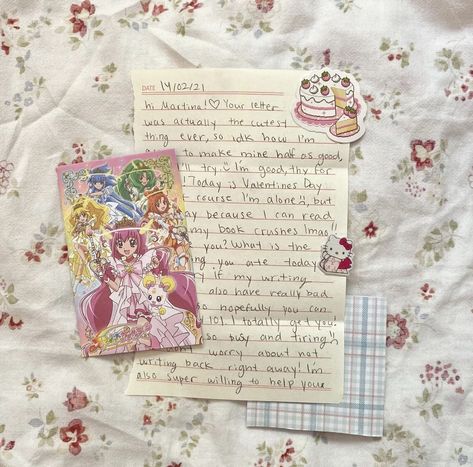 DATE 14/02/21
hi Martina!♡ Your letter
was actually the cutest
thing ever, so idk how I'm
to make mine half as good,
I'll try. I'm good, thy for
Today is Valentines Day
course I'm alone, but
because I can read
my book crushes lmao
you? What is the
you ate today
if my writing
also have really bad
so hopefully you can
lol. I totally get you
so busy and tiring
worry about not
writing back right away! I'm
also super willing to help you